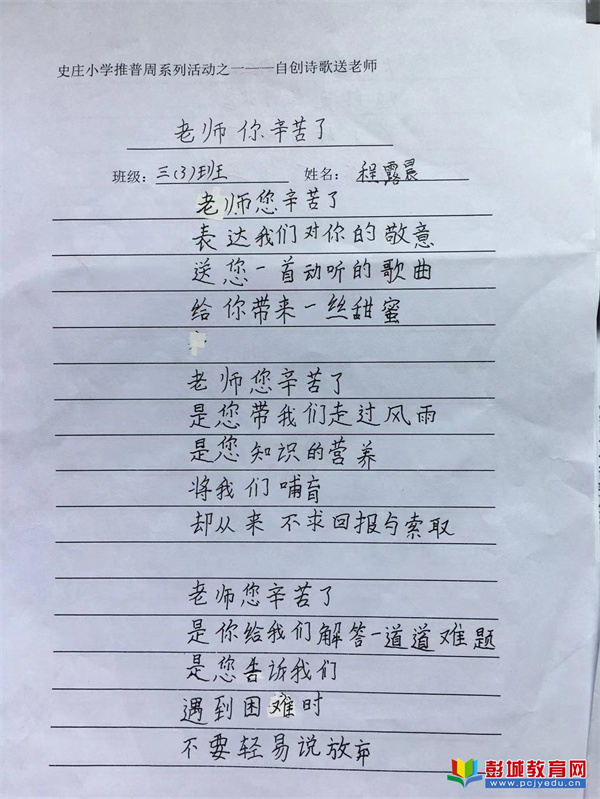 史庄小学推普周系列活动之一——自创诗歌送老师
老师 你辛苦了
班级：三(3)班 姓名：程露晨
老师您辛苦了
表达我们对你的敬意
送您一首动听的歌曲
给你带来一丝甜蜜
老师您辛苦了
是您带我们走过风雨
是您知识的营养
将我们哺育
却从来不求回报与索取
老师您辛苦了
是你给我们解答一道道难题
是您告诉我们
遇到困难时
不要轻易说放弃
彭城教育网
www.pcjyedu.cn